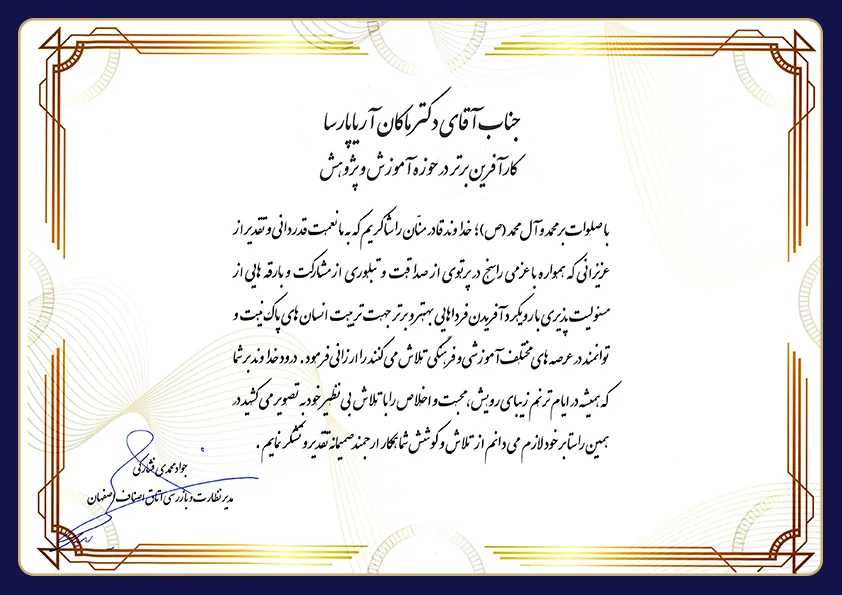 جناب آقای دکتر ماکان آریاپارسا
کارآفرین برتر در حوزه آموزش و پژوهش
با صلوات بر محمد و آل محمد (ص)؛ خداوند قادر منّان را شاکریم که به ما نعمت قدردانی و تقدیر از
عزیزانی که همواره با عزمی راسخ در پرتوی از صداقت و تبلوری از مشارکت و بارقه هایی از
مسئولیت پذیری با رویکرد آفریدن فرداهایی بهتر و برتر جهت تربیت انسان های پاک نیت و
توانمند در عرصه های مختلف آموزشی و فرهنگی تلاش می کنند را ارزانی فرمود. درود خداوند بر شما
که همیشه در ایام ترنم زیبای رویش، محبت و اخلاص را با تلاش بی نظیر خود به تصویر می کشید در
همین راستا بر خود لازم می دانم از تلاش و کوشش شما همکار ارجمند صمیمانه تقدیر و تشکر نمایم.
جواد محمدی فشارکی
مدیر نظارت و بازرسی اتاق اصناف اصفهان